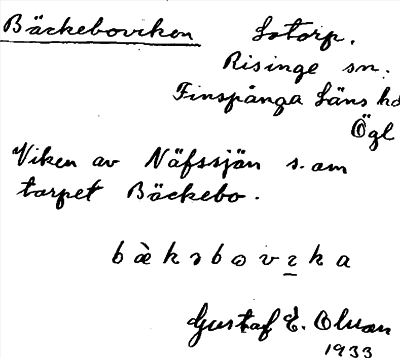 Bäckeboviken Lotorp.
Risinge sn.
Finspånga Läns hd
Ögl
Viken av Näfssjön s. om
torpet Bäckebo.
bæ̀kəbovika
Gustaf E. Olsson
1933